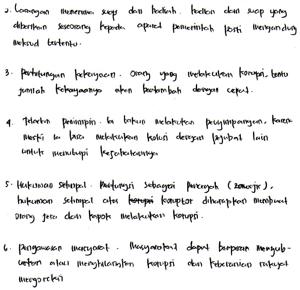 2. Larangan menerima suap dan hadiah. hadiah dan suap yang
diberikan seseorang kepada aparat pemerintah pasti mengandung
maksud tertentu.
3. Perhitungan kekayaan. Orang yang melakukan korupsi, tentu
jumlah kekayaannya akan bertambah dengan cepat.
4. Teladan pemimpin. Ia takan melakukan penyimpangan, karena
meski ia bisa melakukan kolusi dengan pejabat lain
untuk menutupi kejahatannya
5. Hukuman setimpal. berfungsi sebagai pencegah (zawajir),
hukuman setimpal atas koruptor diharapkan membuat
orang jera dan kapok melakukan korupsi.
6. pengawasan masyarakat. masyarakat dapat berperan menyub-
atau menghilangkan korupsi dan keberanian rakyat
mengoreksi